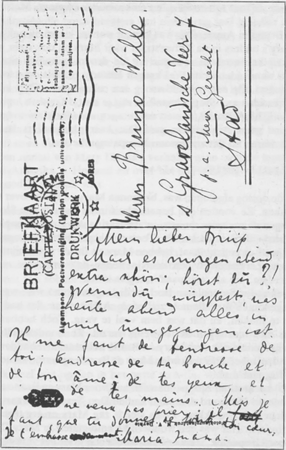 BRIEFKAART
(CARTE POSTALE)
Algemeene Postvereeniging (Union postale universelle)
DRUKWERK
ADRES
Herrn Bruno Wille
's Gravelandsche Veer 7
p. a. Mevr.
Stad
Mein lieber
Mach es morgen abend
extra schön; hörst du?!
Wenn du wüsstest, was
heute abend alles in
mir umgegangen ist.
Il me faut de tendresse de
toi; tendresse de ta bouche et
de ton âme; de tes yeux, et
de tes mains. Mais je
ne veux pas prier. Il
faut que tu donnes
Je t'embrasse
Maria Juana.